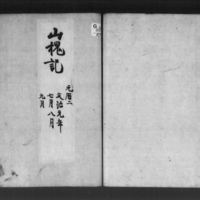 山槐記
元暦二
文治元年
七月八月
九月